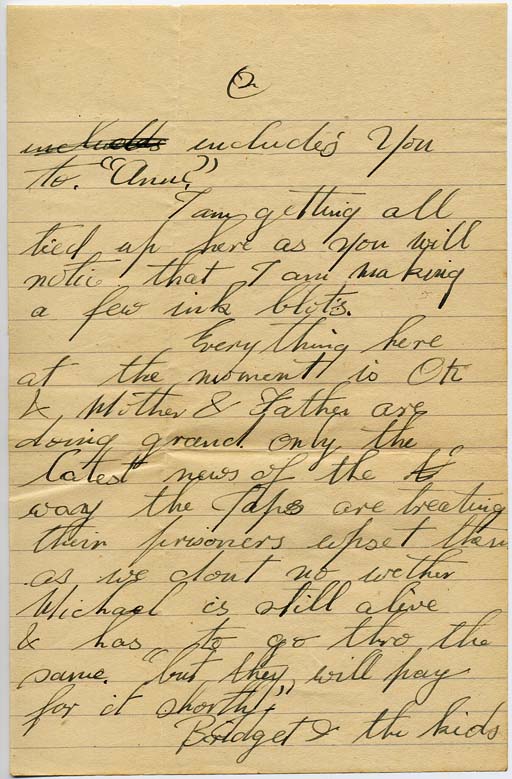 2
includes You
to. "Ann."
I am getting all
tied up here as you will
notic that I am making
a few ink blots.
Everything here
at the moment is Ok
& Mother & Father are
doing grand. only the
latest news of the
way the Japs are treating
their prisoners upset them
as we dont no wether
Michael is still alive
& has to go thro the
same. "but they will pay
for it shortly"
Bridget & the kids